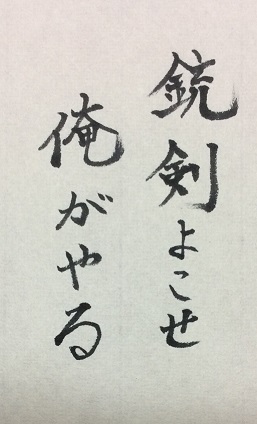 銃剣よこせ
俺がやる